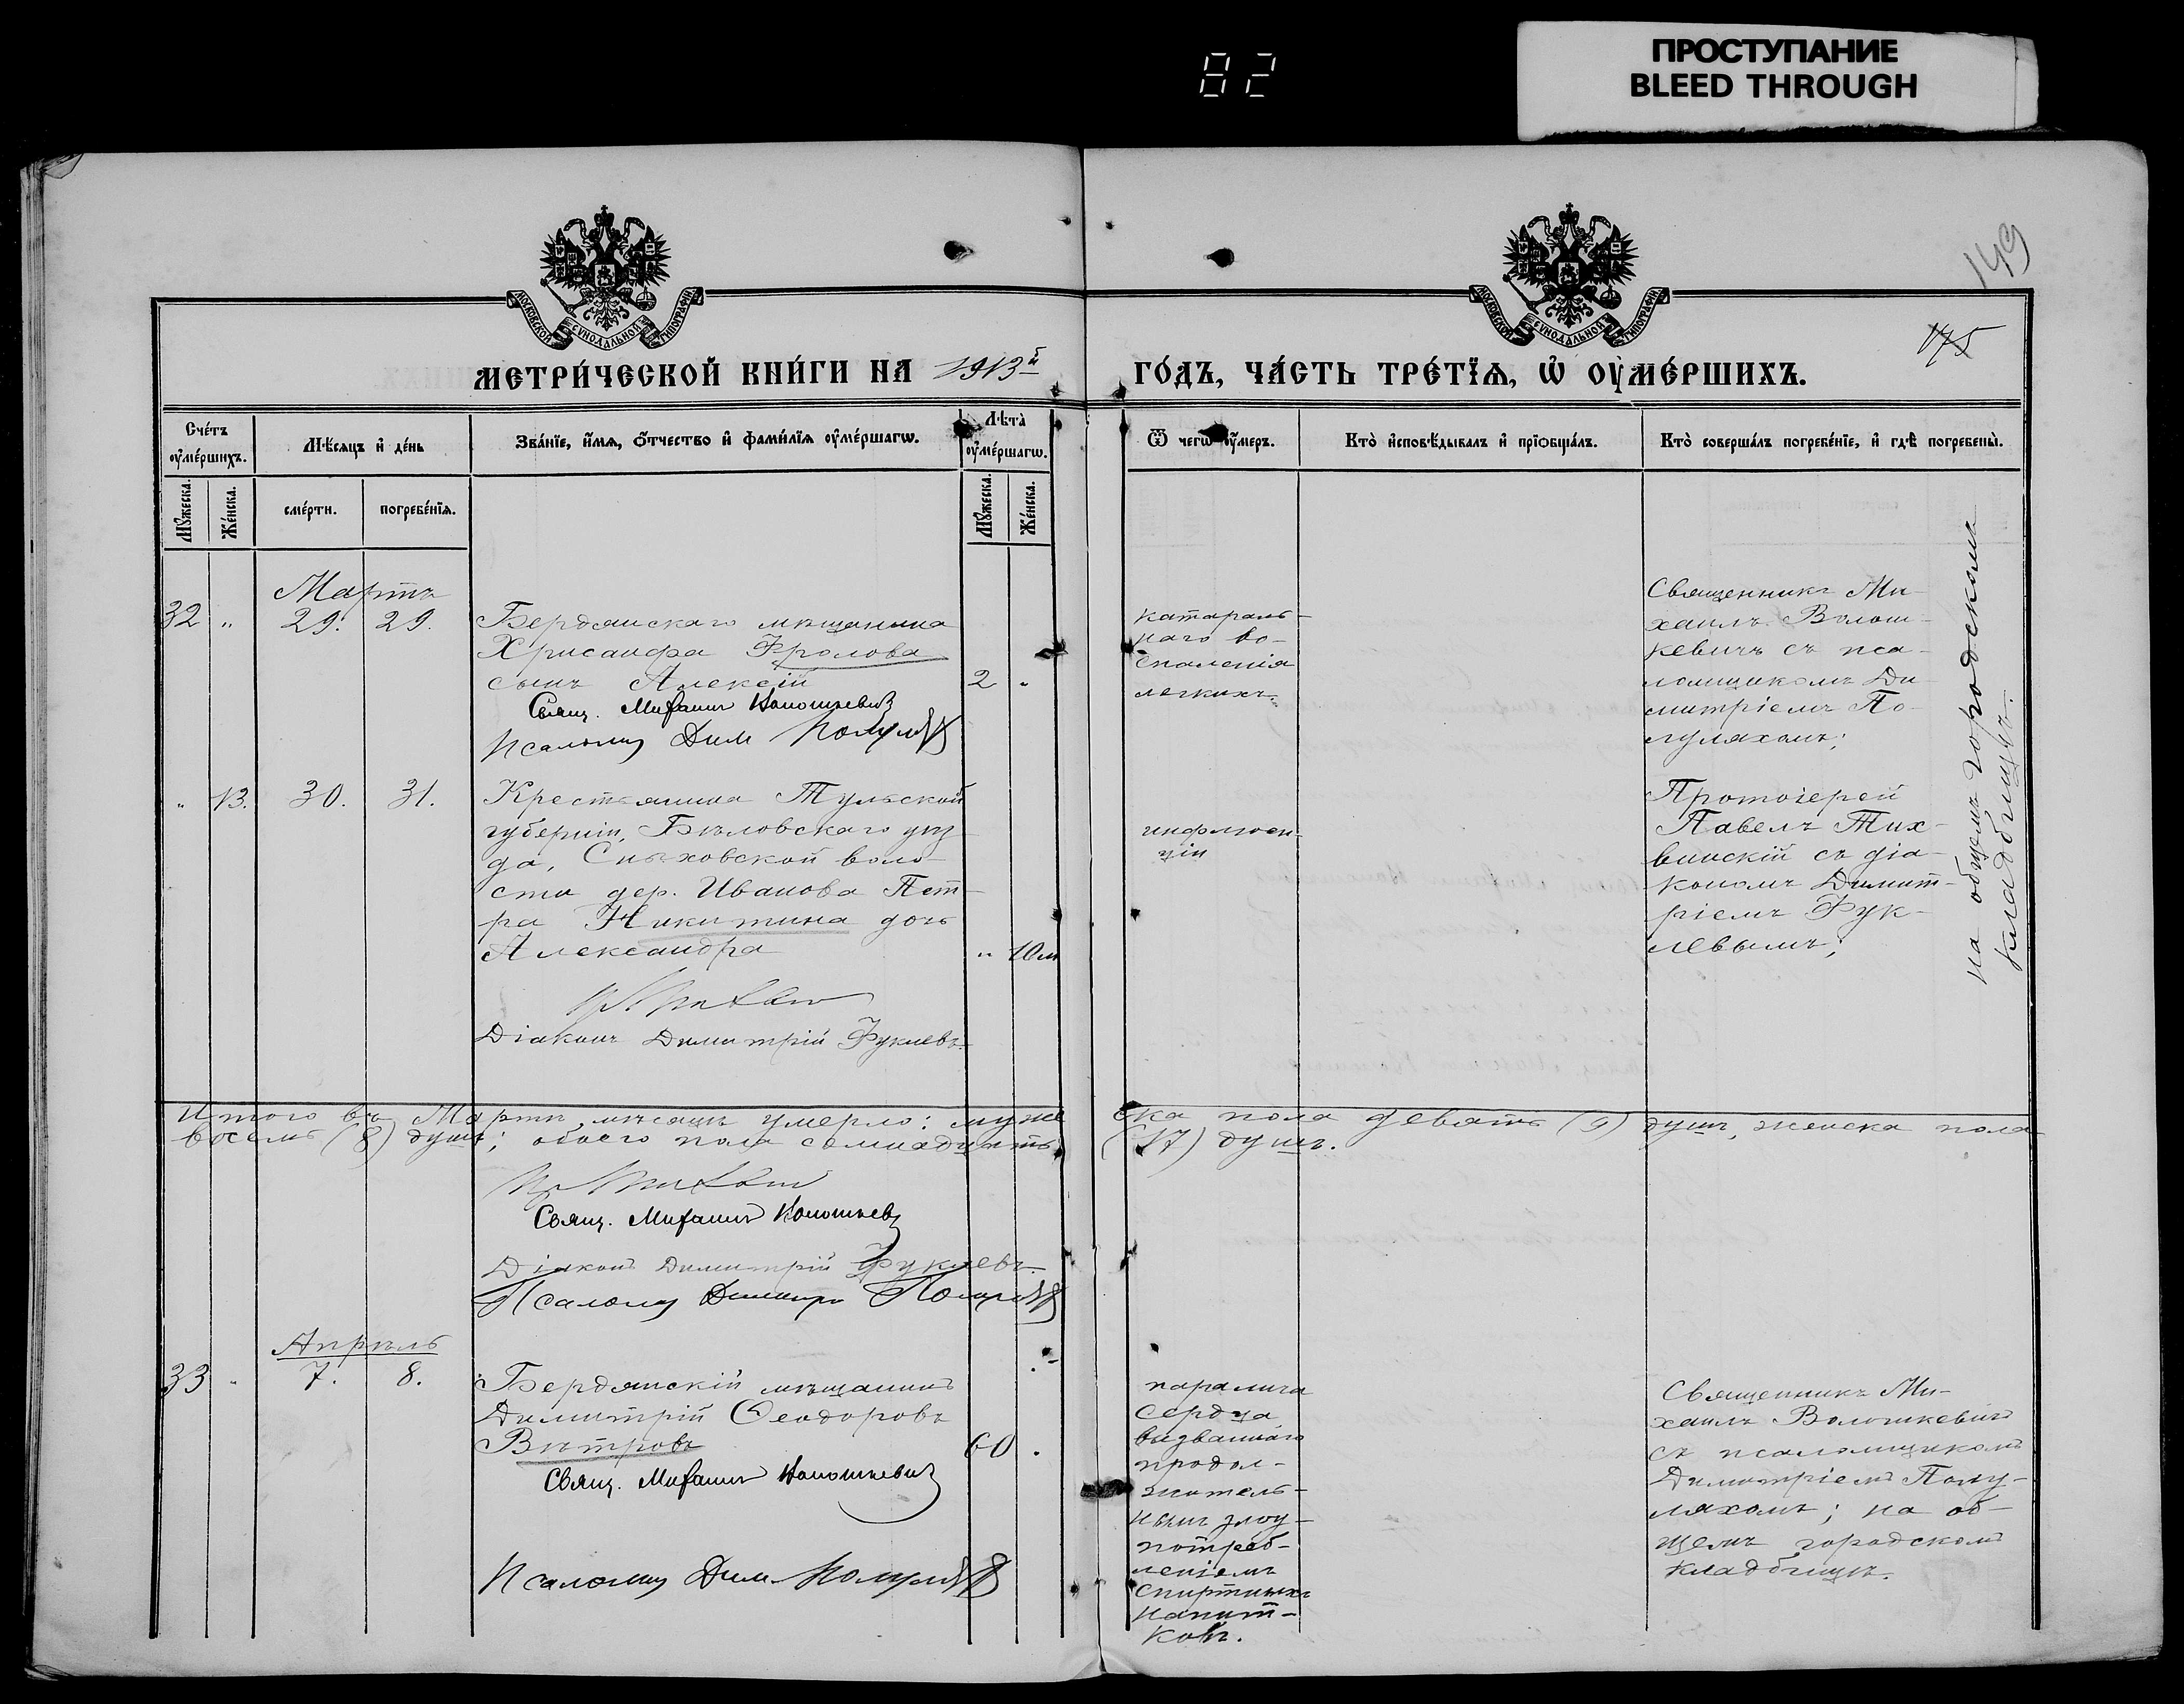 82
ПРОСТУПАНИЕ
BLEED THROUGH
149
175
МОСКОВСКОЙ СѴНОДАЛЬНОЙ ТИПОГРАФІИ
МОСКОВСКОЙ СѴНОДАЛЬНОЙ ТИПОГРАФІИ
МЕТРИ́ЧЕСКОЙ КНИ́ГИ НА 1913й ГО́ДЪ, ЧА́СТЬ ТРЕ́ТЇѦ, Ѡ ОУМЕ́РШИХЪ.
Сче́тъ оуме́ршихъ.
Мѣ́сяцъ и де́нь
Зва́нїе, и́мя, о́тчество и фами́лїя оуме́ршагѡ.
Лѣта̀ оуме́ршагѡ.
Ѿ чегѡ̀ оу́меръ.
Кто̀ исповѣ́дывалъ и прїѡбща́лъ.
Кто̀ соверша́лъ погребе́нїе, и гдѣ̀ погребены̀.
Му́жеска.
Же́нска.
сме́рти.
погребе́нїя.
Му́жеска.
Же́нска.
Мартъ
32 „ 29. 29.
Бердянскаго мѣщанина
Хрисанфа Фролова
сынъ Алексій 2 „
Свящ. Михаилъ Волошкевичъ
Псаломщ Дим Полулях
катараль-
наго во-
спаленія
легкихъ
Священникъ Ми-
хаилъ Волош-
кевичъ съ пса-
ломщикомъ Ди
митріемъ По-
луляхомъ;
„ 13. 30. 31.
Крестьянина Тульской
губерніи, Бѣловскаго уѣз
да, Сныховской воло-
сти дер. Иванова Пет-
ра Никитина дочь
Александра „ 10 м
Діаконъ Димитрій Фуклевъ.
инфлюен-
ціи
Протоіерей
Павелъ Тих-
винскій съ діа-
кономъ Димит-
ріемъ Фук-
левымъ;
на общемъ городскомъ
кладбищѣ.
Итого въ Мартѣ мѣсяцѣ умерло: муже ска пола девять (9) душъ, женска пола
восемь (8) душъ; обоего пола семнадцать (17) душъ.
Свящ. Михаилъ Волошкевичъ
Діаконъ Димитрій Фуклевъ.
Псаломщ Димитрі Полулях
Апрѣль
33 „ 7. 8.
Бердянскій мѣщанинъ
Димитрій Ѳеодоровъ
Вѣтровъ 60 „
Свящ. Михаилъ Волошкевичъ
Псаломщ Дим Полулях
паралича
сердца
вызваннаго
продол-
житель-
нымъ злоу-
потреб-
леніемъ
спиртныхъ
напит-
ковъ.
Священникъ Ми-
хаилъ Волошкевичъ
съ псаломщикомъ
Димитріемъ Полу-
ляхомъ; на об-
щемъ городскомъ
кладбищѣ.